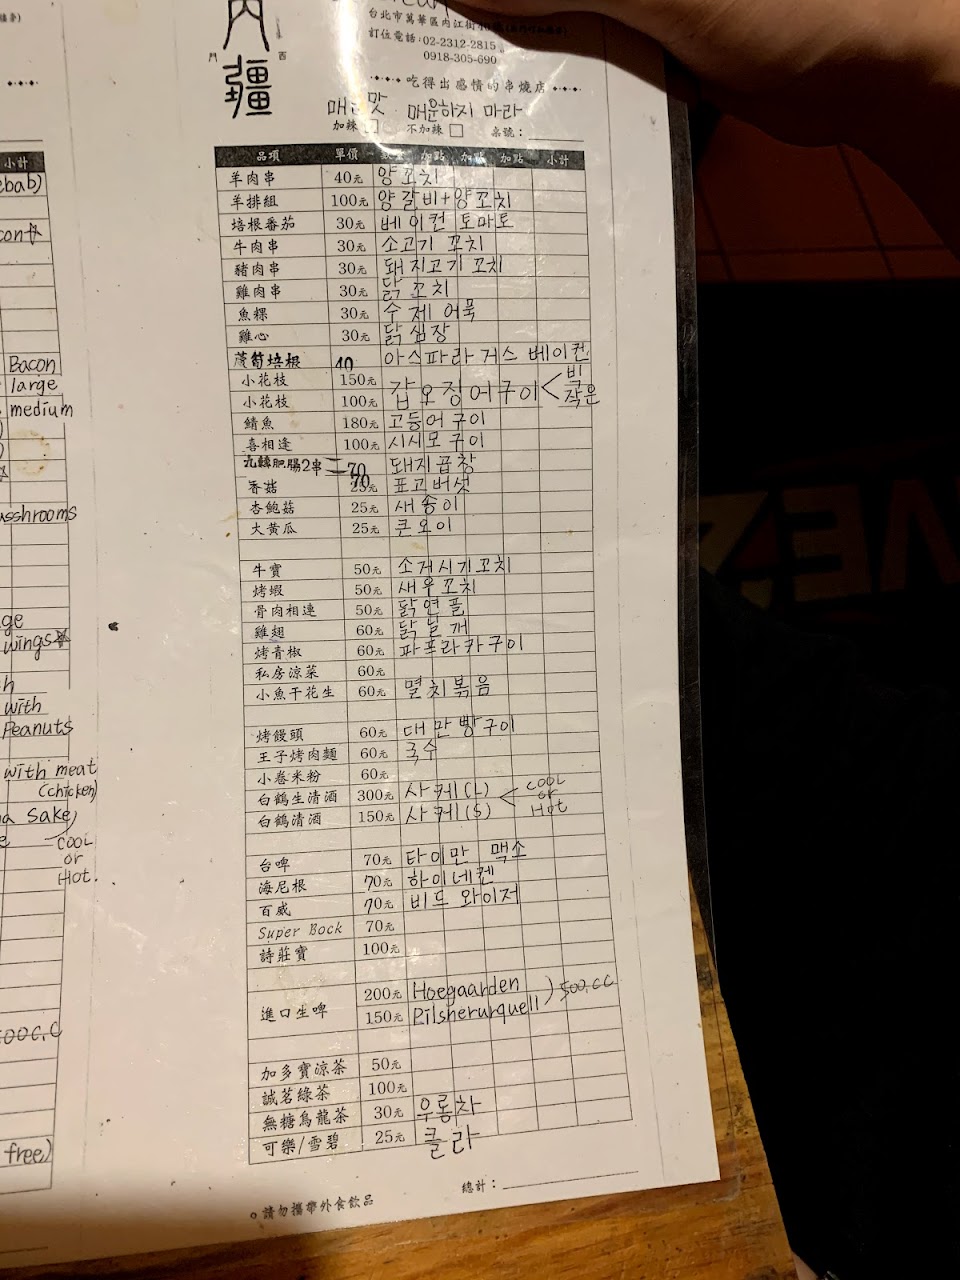 內
疆
門 西
台北市萬華區內江街
訂位電話:02-2312-2815
0918-305-690
吃得出感情的串燒店
매운맛 매운하지 마라
加辣 不加辣 桌號:
小計 品項 單價 數量 加點 加點 加點 小計
ebab) 羊肉串 40元 양꼬치
羊排組 100元 양갈비+양꼬치
con 培根番茄 30元 베이컨 토마토
牛肉串 30元 소고기 꼬치
豬肉串 30元 돼지고기 꼬치
雞肉串 30元 닭꼬치
魚粿 30元 수제 어묵
雞心 30元 닭심장
Bacon 蘆筍培根 40 아스파라거스 베이컨
large 小花枝 150元 갑오징어구이 빅
medium 小花枝 100元 작은
鯖魚 180元 고등어 구이
喜相逢 100元 시시모 구이
九轉肥腸2串 70 돼지곱창
香菇 25元 표고버섯
asshrooms 杏鮑菇 25元 새송이
大黃瓜 25元 큰오이
牛寶 50元 소거시기꼬치
烤蝦 50元 새우꼬치
ge 骨肉相連 50元 닭연플
wings 雞翅 60元 닭날개
烤青椒 60元 파프라카구이
h 私房涼菜 60元
with 小魚干花生 60元 멸치볶음
Peanuts 烤饅頭 60元 대만빵구이
with meat 王子烤肉麵 60元 국수
(chicken) 小卷米粉 60元
a Sake 白鶴生清酒 300元 사케(L) COOL
e COOL 白鶴清酒 150元 사케(S) or
or HOt
HOt. 台啤 70元 타이만 맥소
海尼根 70元 하이네켄
百威 70元 비드와이저
Super Bock 70元
詩莊寶 100元
進口生啤 200元 Hoegaarden ) 500.CC
500C.C 150元 Pilsherurquell
加多寶涼茶 50元
誠茗綠茶 100元
無糖烏龍茶 30元 우롱차
free) 可樂/雪碧 25元 클라
總計:
請勿攜帶外食飲品